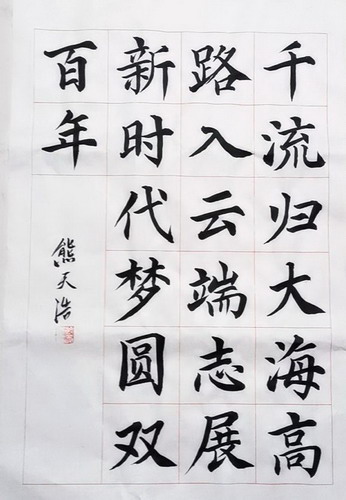 千流归大海高
路入云端志展
新时代梦圆双
百年
熊天浩